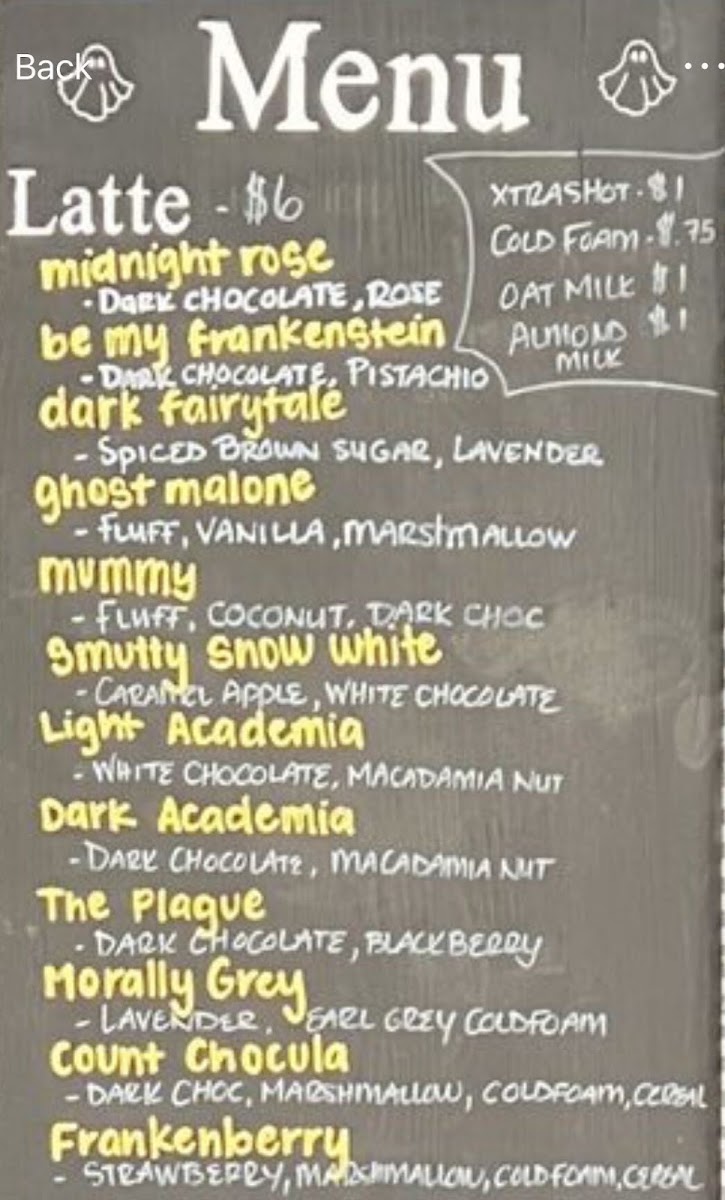 Back
Menu
Latte - $6
XTRA SHOT - $1
COLD FOAM - $.75
OAT MILK $1
ALMOND $1
MILK
midnight rose
- DARK CHOCOLATE, ROSE
be my frankenstein
- DARK CHOCOLATE, PISTACHIO
dark fairytale
- SPICED BROWN SUGAR, LAVENDER
ghost malone
- FLUFF, VANILLA, MARSHMALLOW
mummy
- FLUFF, COCONUT, DARK CHOC
Smutty Snow White
- CARAMEL APPLE, WHITE CHOCOLATE
Light Academia
- WHITE CHOCOLATE, MACADAMIA NUT
Dark Academia
- DARK CHOCOLATE, MACADAMIA NUT
The Plague
- DARK CHOCOLATE, BLACKBERRY
Morally Grey
- LAVENDER, EARL GREY COLDFOAM
Count Chocula
- DARK CHOC, MARSHMALLOW, COLDFOAM, CEREAL
Frankenberry
- STRAWBERRY, MARSHMALLOW, COLDFOAM, CEREAL